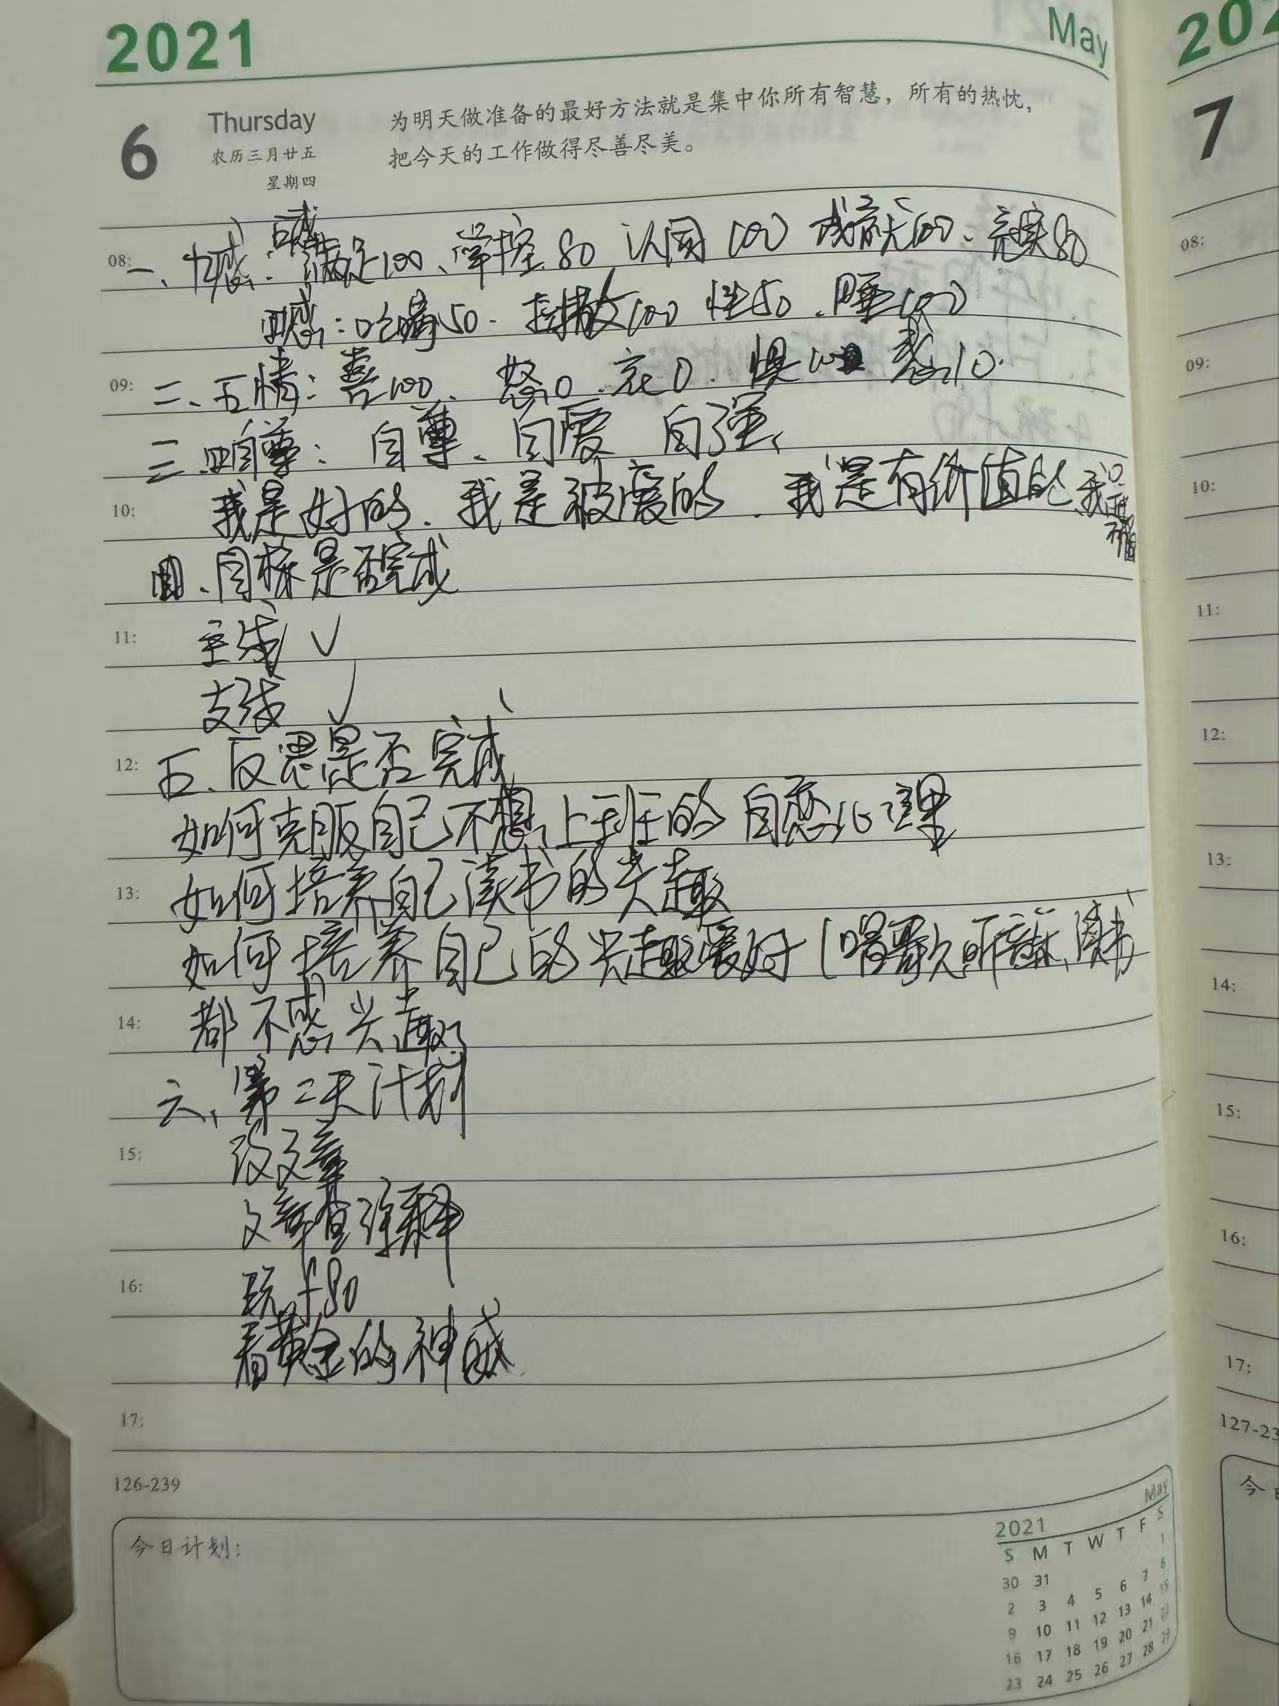 2021 May
6 Thursday 农历三月廿五 星期四
为明天做准备的最好方法就是集中你所有智慧，所有的热忱，
把今天的工作做得尽善尽美。
08: 一、感：满足100、掌控80 认同100 成就100、充实80
感：50. 100 性50、睡100
09: 二、五情：喜100、怒0、哀0、惧 10.
三自尊：自尊、自爱 自强、
10: 我是好的、我是被爱的、我是有价值的、我
四、目标是否完成
11: 主线√
支线√
12: 五、反思是否完成
如何克服自己不想上班的自恋心理
13: 如何培养自己读书的兴趣
如何培养自己的兴趣爱好（唱歌 读书
14: 都不感兴趣
六、第二天计划
15: 改文章
文章查
16: 玩 f80
看黄金的神威
17:
126-239
今日计划：
2021 May
S M T W T F S
30 31 1
2 3 4 5 6 7 8
9 10 11 12 13 14 15
16 17 18 19 20 21 22
23 24 25 26 27 28 29
202
7
08:
09:
10:
11:
12:
13:
14:
15:
16:
17:
127-23
今日